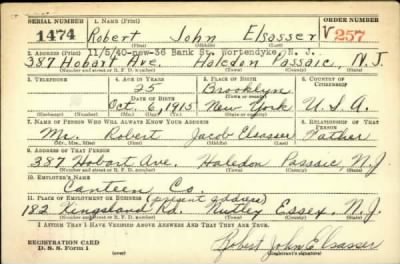 SERIAL NUMBER 1. NAME (Print) ORDER NUMBER
1474 Robert John Elsasser V257
(First) (Middle) (Last)
2. ADDRESS (Print) 11/5/40-now-36 Bank St. Wortendyke, N. J.
387 Hobart Ave. Haledon Passaic, N. J.
(Number and street or R. F. D. number) (Town) (County) (State)
3. TELEPHONE 4. AGE IN YEARS 5. PLACE OF BIRTH 6. COUNTRY OF CITIZENSHIP
25 Brooklyn
DATE OF BIRTH (Town or county)
Oct. 6, 1915 New York U.S.A.
(Exchange) (Number) (Mo.) (Day) (Yr.) (State or country)
7. NAME OF PERSON WHO WILL ALWAYS KNOW YOUR ADDRESS 8. RELATIONSHIP OF THAT PERSON
Mr. Robert Jacob Elsasser Father
(Mr., Mrs., Miss) (First) (Middle) (Last)
9. ADDRESS OF THAT PERSON
387 Hobart Ave. Haledon Passaic N.J.
(Number and street or R. F. D. number) (Town) (County) (State)
10. EMPLOYER'S NAME
Canteen Co.
11. PLACE OF EMPLOYMENT OR BUSINESS (present address)
182 Kingsland Rd. Nutley Essex, N.J.
(Number and street or R. F. D. number) (Town) (County) (State)
I AFFIRM THAT I HAVE VERIFIED ABOVE ANSWERS AND THAT THEY ARE TRUE.
Robert John Elsasser
REGISTRATION CARD
D. S. S. Form 1 (over) (Registrant's signature)